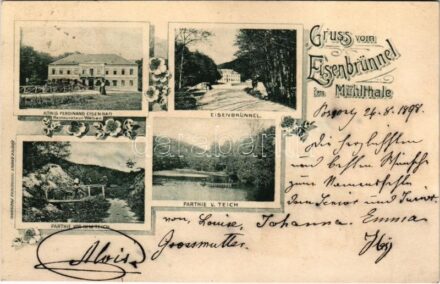 Gruss vom
Eisenbrünnel
im Mühlthale
KÖNIG FERDINAND EISENBAD
EISENBRÜNNEL
PARTHIE VOR DEM TEICH
PARTHIE V. TEICH
26.8.1898.
Die herzlichsten
und besten Wünsche
zum Namensfeste
von, Louise, Johanna. Emma
Grossmutter.
Alois.
darabanth